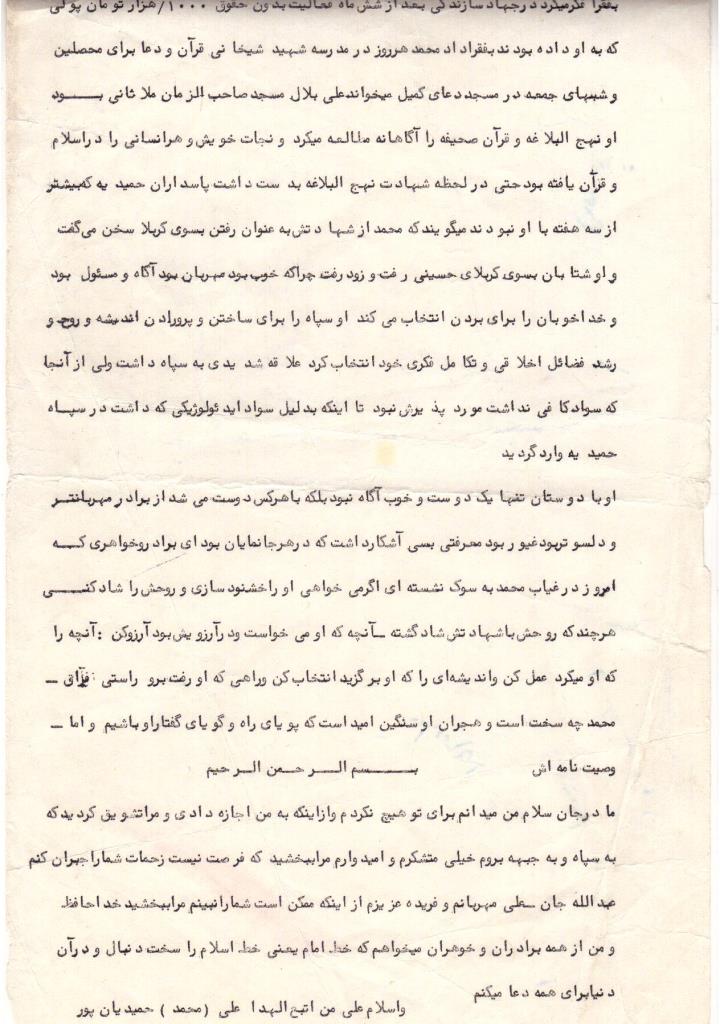 بفقرا فکرمیکرد درجهاد سازندگی بعد از شش ماه فعالیت بدون حقوق ۱۰۰۰/هزار تومان پولی
که به او داده بودند بفقراداد محمد هرروز در مدرسه شهید شیخانی قرآن و دعا برای محصلین
و شبهای جمعه در مسجد دعای کمیل میخواند علی بلال مسجد صاحب الزمان ملاثانی بود
او نهج البلاغه و قرآن صحیفه را آگاهانه مطالعه میکرد و نجات خویش و هرانسانی را دراسلام
و قرآن یافته بود حتی در لحظه شهادت نهج البلاغه بدست داشت پاسداران حمیدیه که بیشتر
از سه هفته با او نبودند میگویند که محمد از شهادتش به عنوان رفتن بسوی کربلا سخن می‌گفت
و اوشتابان بسوی کربلای حسینی رفت و زود رفت چراکه خوب بود مهربان بود آگاه و مسئول بود
و خداخوبان را برای بردن انتخاب می کند او سپاه را برای ساختن و پروراندن اندیشه و روح و
رشد فضائل اخلاقی و تکامل فکری خود انتخاب کرد علاقه شدیدی به سپاه داشت ولی از آنجا
که سوادکافی نداشت مورد پذیرش نبود تا اینکه بدلیل سواد ایدئولوژیکی که داشت در سپاه
حمیدیه وارد گردید
او با دوستان تنها یک دوست و خوب آگاه نبود بلکه باهرکس دوست می شد از برادر مهربانتر
و دلسوتربود غیور بود معرفتی بسی آشکارداشت که درهرجانمایان بود ای برادروخواهری که
امروز در غیاب محمد به سوک نشسته ای اگرمی خواهی او راخشنود سازی و روحش را شاد کنی
هرچند که روحش باشهادتش شاد گشته ـ آنچه که او می خواست ودرآرزویش بود آرزوکن : آنچه را
که او میکرد عمل کن واندیشه‌ای را که او برگزید انتخاب کن وراهی که او رفت برو راستی : فراق ـ
محمد چه سخت است و هجران او سنگین امید است که پویای راه و گویای گفتار او باشیم و اما ـ
وصیت نامه اش بسم الرحمن الرحیم
مادرجان سلام من میدانم برای تو هیچ نکردم وازاینکه به من اجازه دادی و مراتشویق کردید که
به سپاه و به جبهه بروم خیلی متشکرم و امیدوارم مراببخشید که فرصت نیست زحمات شماراجبران کنم
عبدالله جان ـ علی مهربانم و فریده عزیزم از اینکه ممکن است شمارانبینم مراببخشید خداحافظ
و من از همه برادران و خوهران میخواهم که خط امام یعنی خط اسلام را سخت دنبال و درآن
دنیابرای همه دعا میکنم
واسلام علی من اتبع الهدا علی (محمد) حمیدیان پور